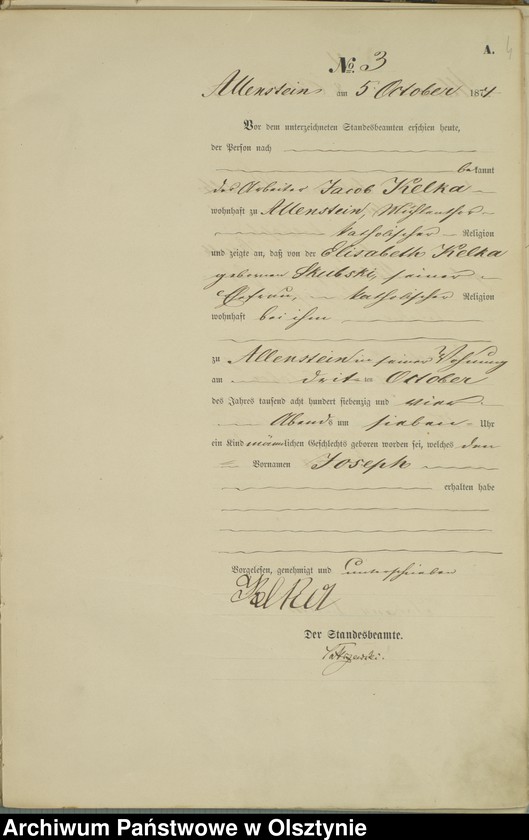 A. 4
No. 3
Allenstein am 5 October 1874
Vor dem unterzeichneten Standesbeamten erschien heute,
der Person nach
bekannt
der Arbeiter Jacob Kelka
wohnhaft zu Allenstein,
katholischer Religion
und zeigte an, daß von der Elisabeth Kelka
geborenen Skubski, seiner
Ehefrau, katholischer Religion
wohnhaft bei ihm
zu Allenstein in seiner Wohnung
am dritten October
des Jahres tausend acht hundert siebenzig und vier
Abends um sieben Uhr
ein Kind männlichen Geschlechts geboren worden sei, welches den
Vornamen Joseph
erhalten habe
Vorgelesen, genehmigt und unterschrieben
Kelka
Der Standesbeamte.
Archiwum Państwowe w Olsztynie